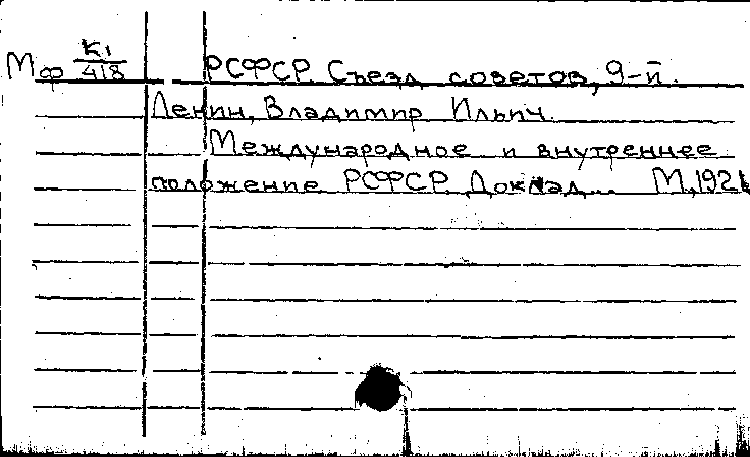 Мф К1/418
РСФСР. Съезд советов, 9-й.
Ленин, Владимир Ильич.
Международное и внутреннее
положение РСФСР. Доклад... М., 1921